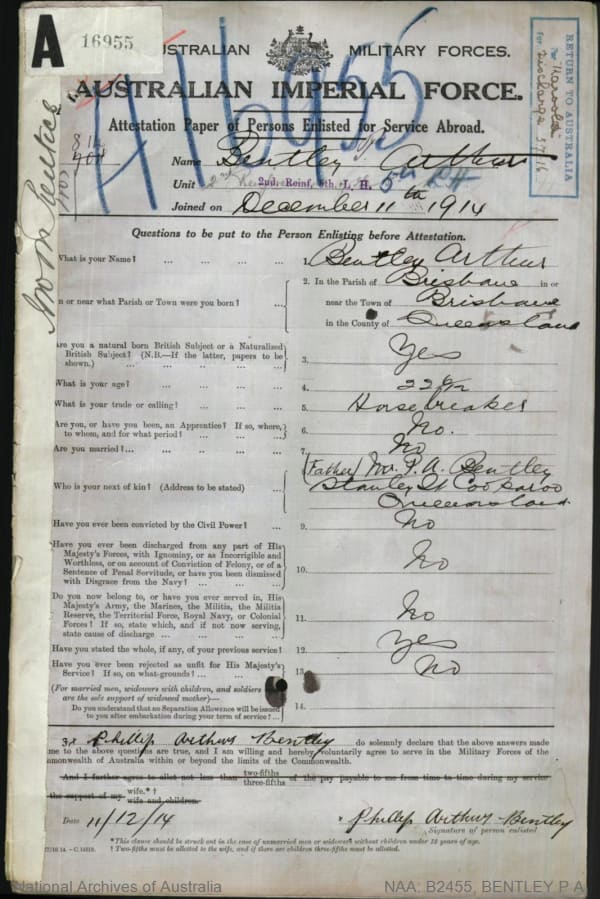 A 16955
AUSTRALIAN MILITARY FORCES.
AUSTRALIAN IMPERIAL FORCE.
Attestation Paper of Persons Enlisted for Service Abroad.
H16055
RETURN TO AUSTRALIA
Per
For discharge
Name Bentley Arthur
Unit 2nd. Reinf. 5th. L. H. 5th LH
Joined on December 11th 1914
Questions to be put to the Person Enlisting before Attestation.
What is your Name? ... ... ... ... 1. Bentley Arthur
2. In the Parish of Brisbane in or
In or near what Parish or Town were you born? ... near the Town of Brisbane
in the County of Queensland
Are you a natural born British Subject or a Naturalized
British Subject? (N.B.—If the latter, papers to be
shown.) 3. Yes
What is your age? 4. 22
What is your trade or calling? 5. Horsebreaker
Are you, or have you been, an Apprentice? If so, where,
to whom, and for what period? 6. No.
Are you married? 7. No
(Father) Mr. P. A. Bentley
Who is your next of kin? (Address to be stated) Stanley St Coorparoo
Queensland
Have you ever been convicted by the Civil Power? 9. No
Have you ever been discharged from any part of His
Majesty's Forces, with Ignominy, or as Incorrigible and
Worthless, or on account of Conviction of Felony, or of a
Sentence of Penal Servitude, or have you been dismissed
with Disgrace from the Navy? 10. No
Do you now belong to, or have you ever served in, His
Majesty's Army, the Marines, the Militia, the Militia
Reserve, the Territorial Force, Royal Navy, or Colonial
Forces? If so, state which, and if not now serving,
state cause of discharge 11. No
Have you stated the whole, if any, of your previous service? 12. Yes
Have you ever been rejected as unfit for His Majesty's
Service? If so, on what grounds? 13. No
(For married men, widowers with children, and soldiers who
are the sole support of widowed mother)—
Do you understand that no Separation Allowance will be issued
to you after embarkation during your term of service? 14.
Phillip Arthur Bentley do solemnly declare that the above answers made
me to the above questions are true, and I am willing and hereby voluntarily agree to serve in the Military Forces of the
Commonwealth of Australia within or beyond the limits of the Commonwealth.
And I further agree to allot not less than two-fifths three-fifths of the pay payable to me from time to time during my service
the support of my wife.*† wife and children.
Date 11/12/14 Phillip Arthur Bentley
Signature of person enlisted
*This clause should be struck out in the case of unmarried men or widowers without children under 18 years of age.
† Two-fifths must be allotted to the wife, and if there are children three-fifths must be allotted.
National Archives of Australia NAA: B2455, BENTLEY P A